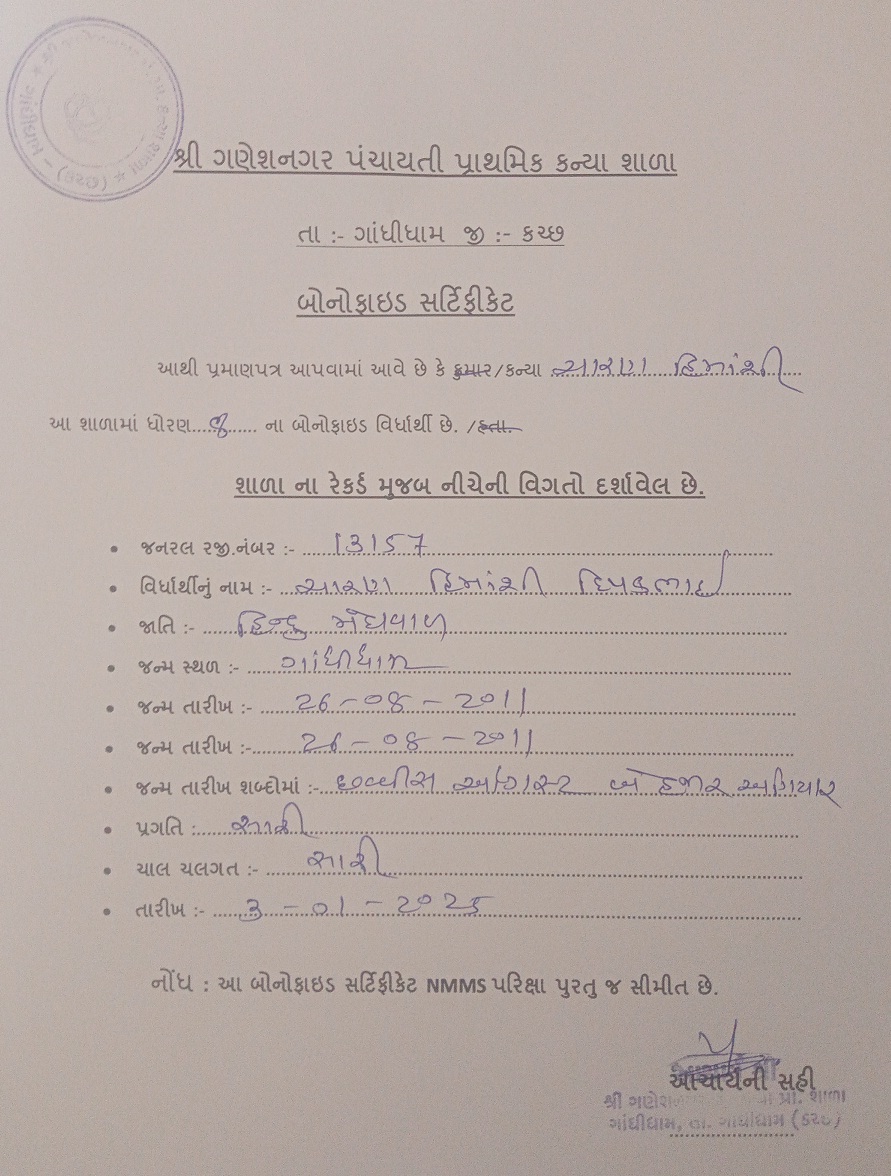 શ્રી ગણેશનગર પંચાયતી પ્રાથમિક કન્યા શાળા
તા :- ગાંધીધામ જી :- કચ્છ
બોનોફાઇડ સર્ટિફીકેટ
આથી પ્રમાણપત્ર આપવામાં આવે છે કે કુમાર/કન્યા ચારણ હિમાંશી
આ શાળામાં ધોરણ.... ના બોનોફાઇડ વિર્ધાર્થી છે. /હતા.
શાળા ના રેકર્ડ મુજબ નીચેની વિગતો દર્શાવેલ છે.
• જનરલ રજી.નંબર :- 13157
• વિર્ધાર્થીનું નામ :- ચારણ હિમાંશી દિપકભાઈ
• જાતિ :- હિન્દુ મેઘવાળ
• જન્મ સ્થળ :- ગાંધીધામ
• જન્મ તારીખ :- 26-08-2011
• જન્મ તારીખ :- 26-08-2011
• જન્મ તારીખ શબ્દોમાં :- છવ્વીસ ઓગસ્ટ બે હજાર અગિયાર
• પ્રગતિ :- સારી
• ચાલ ચલગત :- સારી
• તારીખ :- 3-01-2025
નોંધ : આ બોનોફાઇડ સર્ટિફીકેટ NMMS પરિક્ષા પુરતુ જ સીમીત છે.
આચાર્યની સહી
શ્રી ગણેશ પ્રા. શાળા
ગાંધીધામ, તા. ગાંધીધામ (કચ્છ)